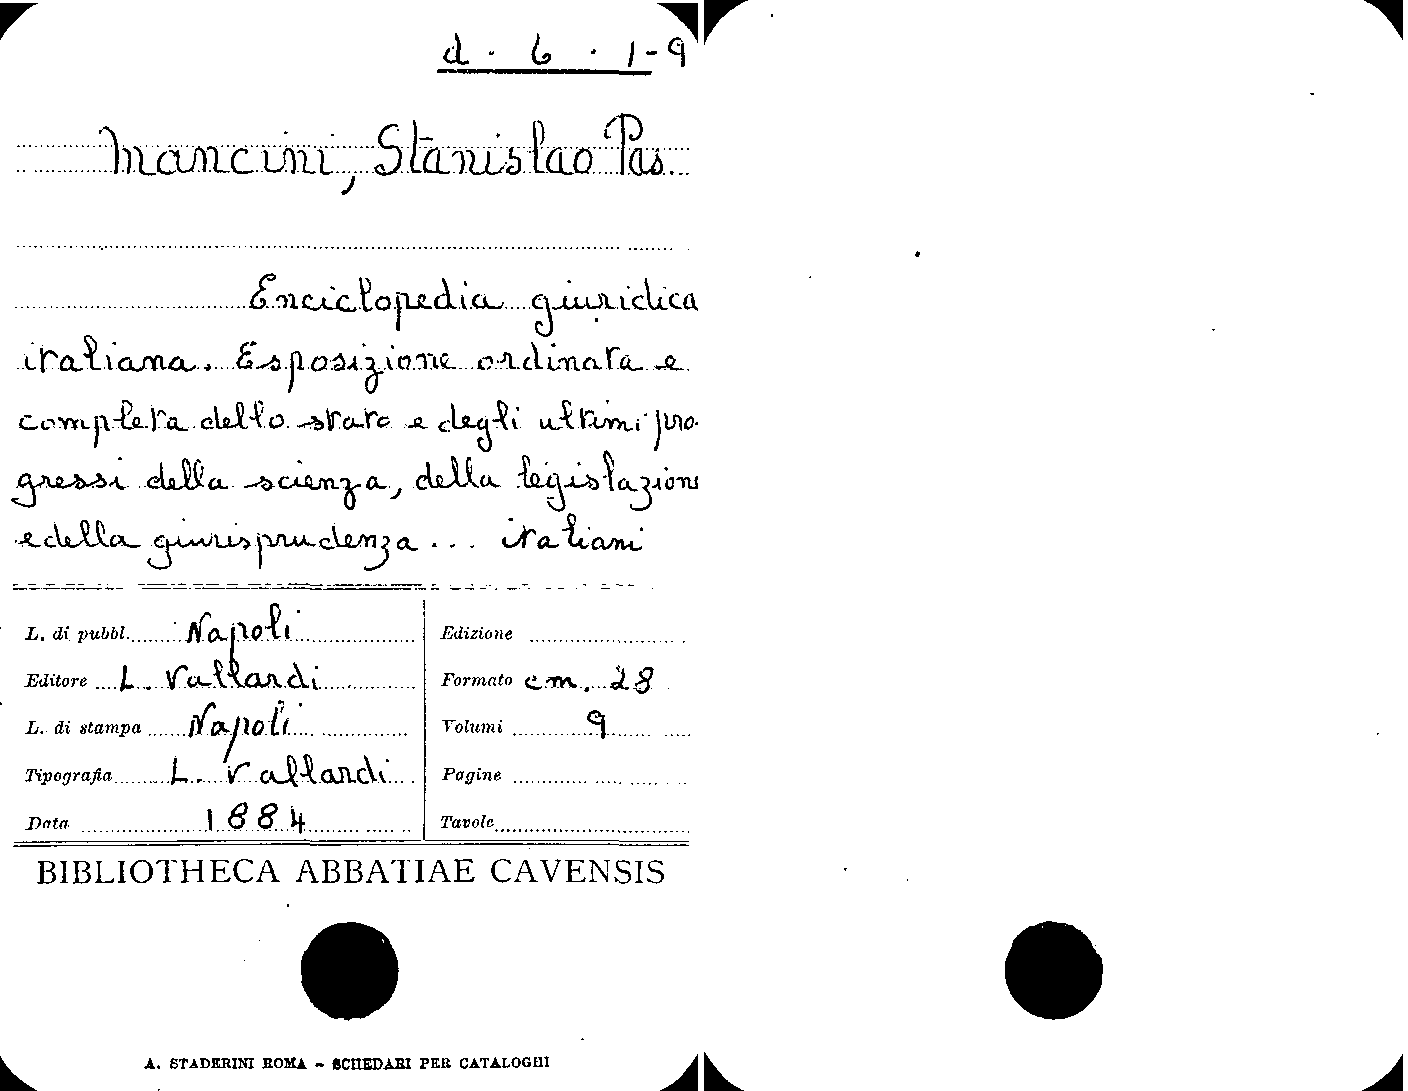 d. 6. 1-9
Mancini, Stanislao Pas.
Enciclopedia giuridica
italiana. Esposizione ordinata e
completa dello stato e degli ultimi pro-
gressi della scienza, della legislazione
e della giurisprudenza... italiani
L. di pubbl. Napoli
Editore L. Vallardi
L. di stampa Napoli
Tipografia L. Vallardi
Data 1884
Edizione
Formato cm. 28
Volumi 9
Pagine
Tavole
BIBLIOTHECA ABBATIAE CAVENSIS
A. STADERINI ROMA - SCHEDARI PER CATALOGHI